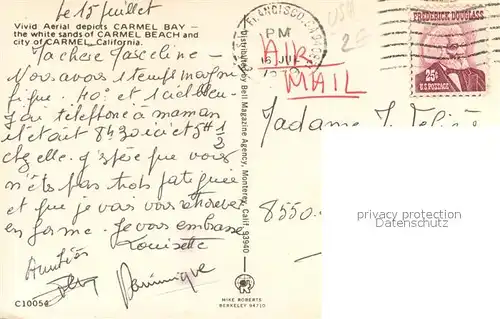 le 15 juillet
Vivid Aerial depicts CARMEL BAY -
the white sands of CARMEL BEACH and
city of CARMEL, California.
Ma chère
Nous avons 1 temps magni
fique : 40° et 1 ciel bleu.
J'ai téléphoné à maman
il était 8h30 ici et 5H 1/2
chez elle. J'espère que vous
n'êtes pas trop fatiguée
et que je vais vous
en forme. Je vous embrasse
Louisette
Dominique
C10054
Distributed by Bell Magazine Agency, Monterey, Calif. 93940
MIKE ROBERTS
BERKELEY 94710
FRANCISCO, CA
PM
16 JUL
USA
AIR
MAIL
FREDERICK DOUGLASS
25¢
U.S. POSTAGE
Madame J.
8550
privacy protection
Datenschutz